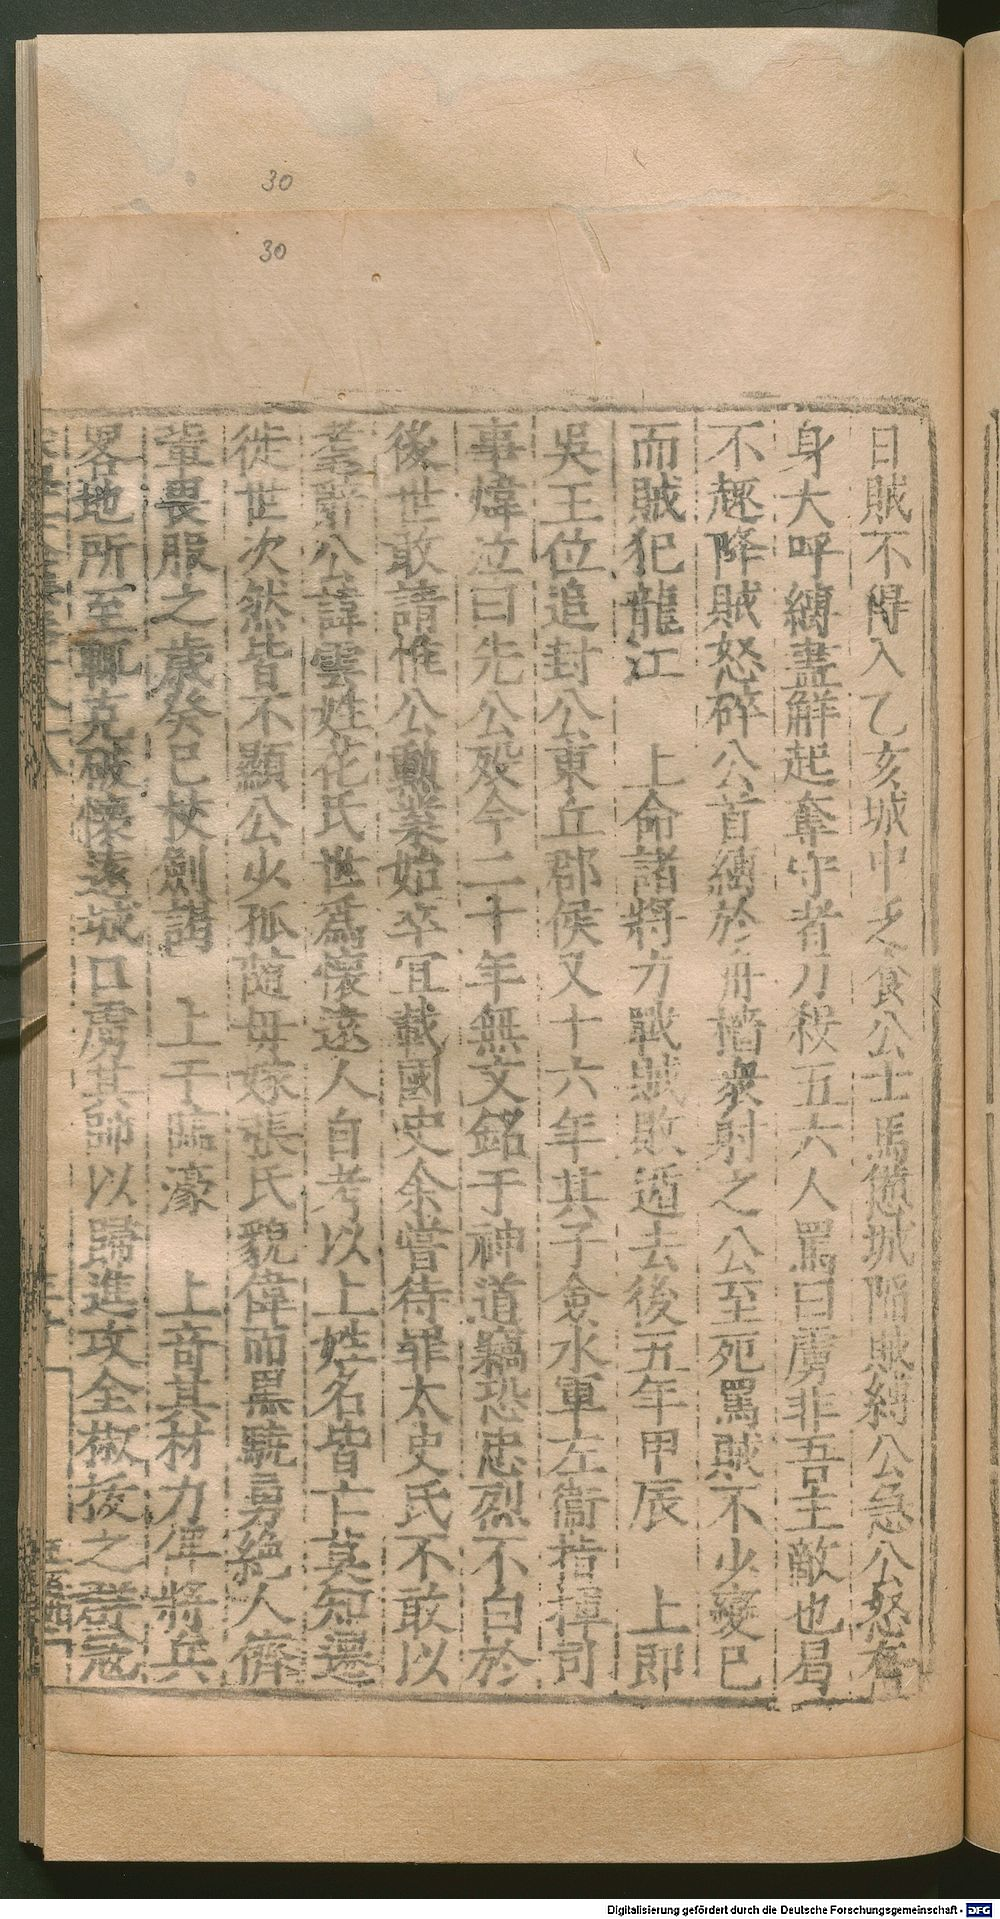 30
30
日賊不得入乙亥城中乏食公士馬憊城陷賊縛公急公怒奮
身大呼縛盡觧起奪守者刀殺五六人罵曰虜非吾主敵也曷
不趣降賊怒碎公首縛於舟檣衆射之公至死罵賊不少變已
而賊犯龍江　上命諸將力戰賊敗遁去後五年甲辰　上即
吳王位追封公東丘郡侯又十六年其子僉水軍左衞指揮司
事煒泣曰先公殁今二十年無文銘于神道竊恐忠烈不白於
後世敢請惟公勳業始卒宜載國史余嘗待罪太史氏不敢以
辭公諱雲姓花氏世爲懷遠人自考以上姓名皆亡莫知遷
徙世次然皆不顯公少孤隨母嫁張氏貌偉而黑驍勇絶人儕
輩畏服之歲癸巳杖劍謁　上于臨濠　上奇其材力俾將兵
畧地所至輒克破懷遠城口虜其帥以歸進攻全椒拔之群冦
Digitalisierung gefördert durch die Deutsche Forschungsgemeinschaft - DFG